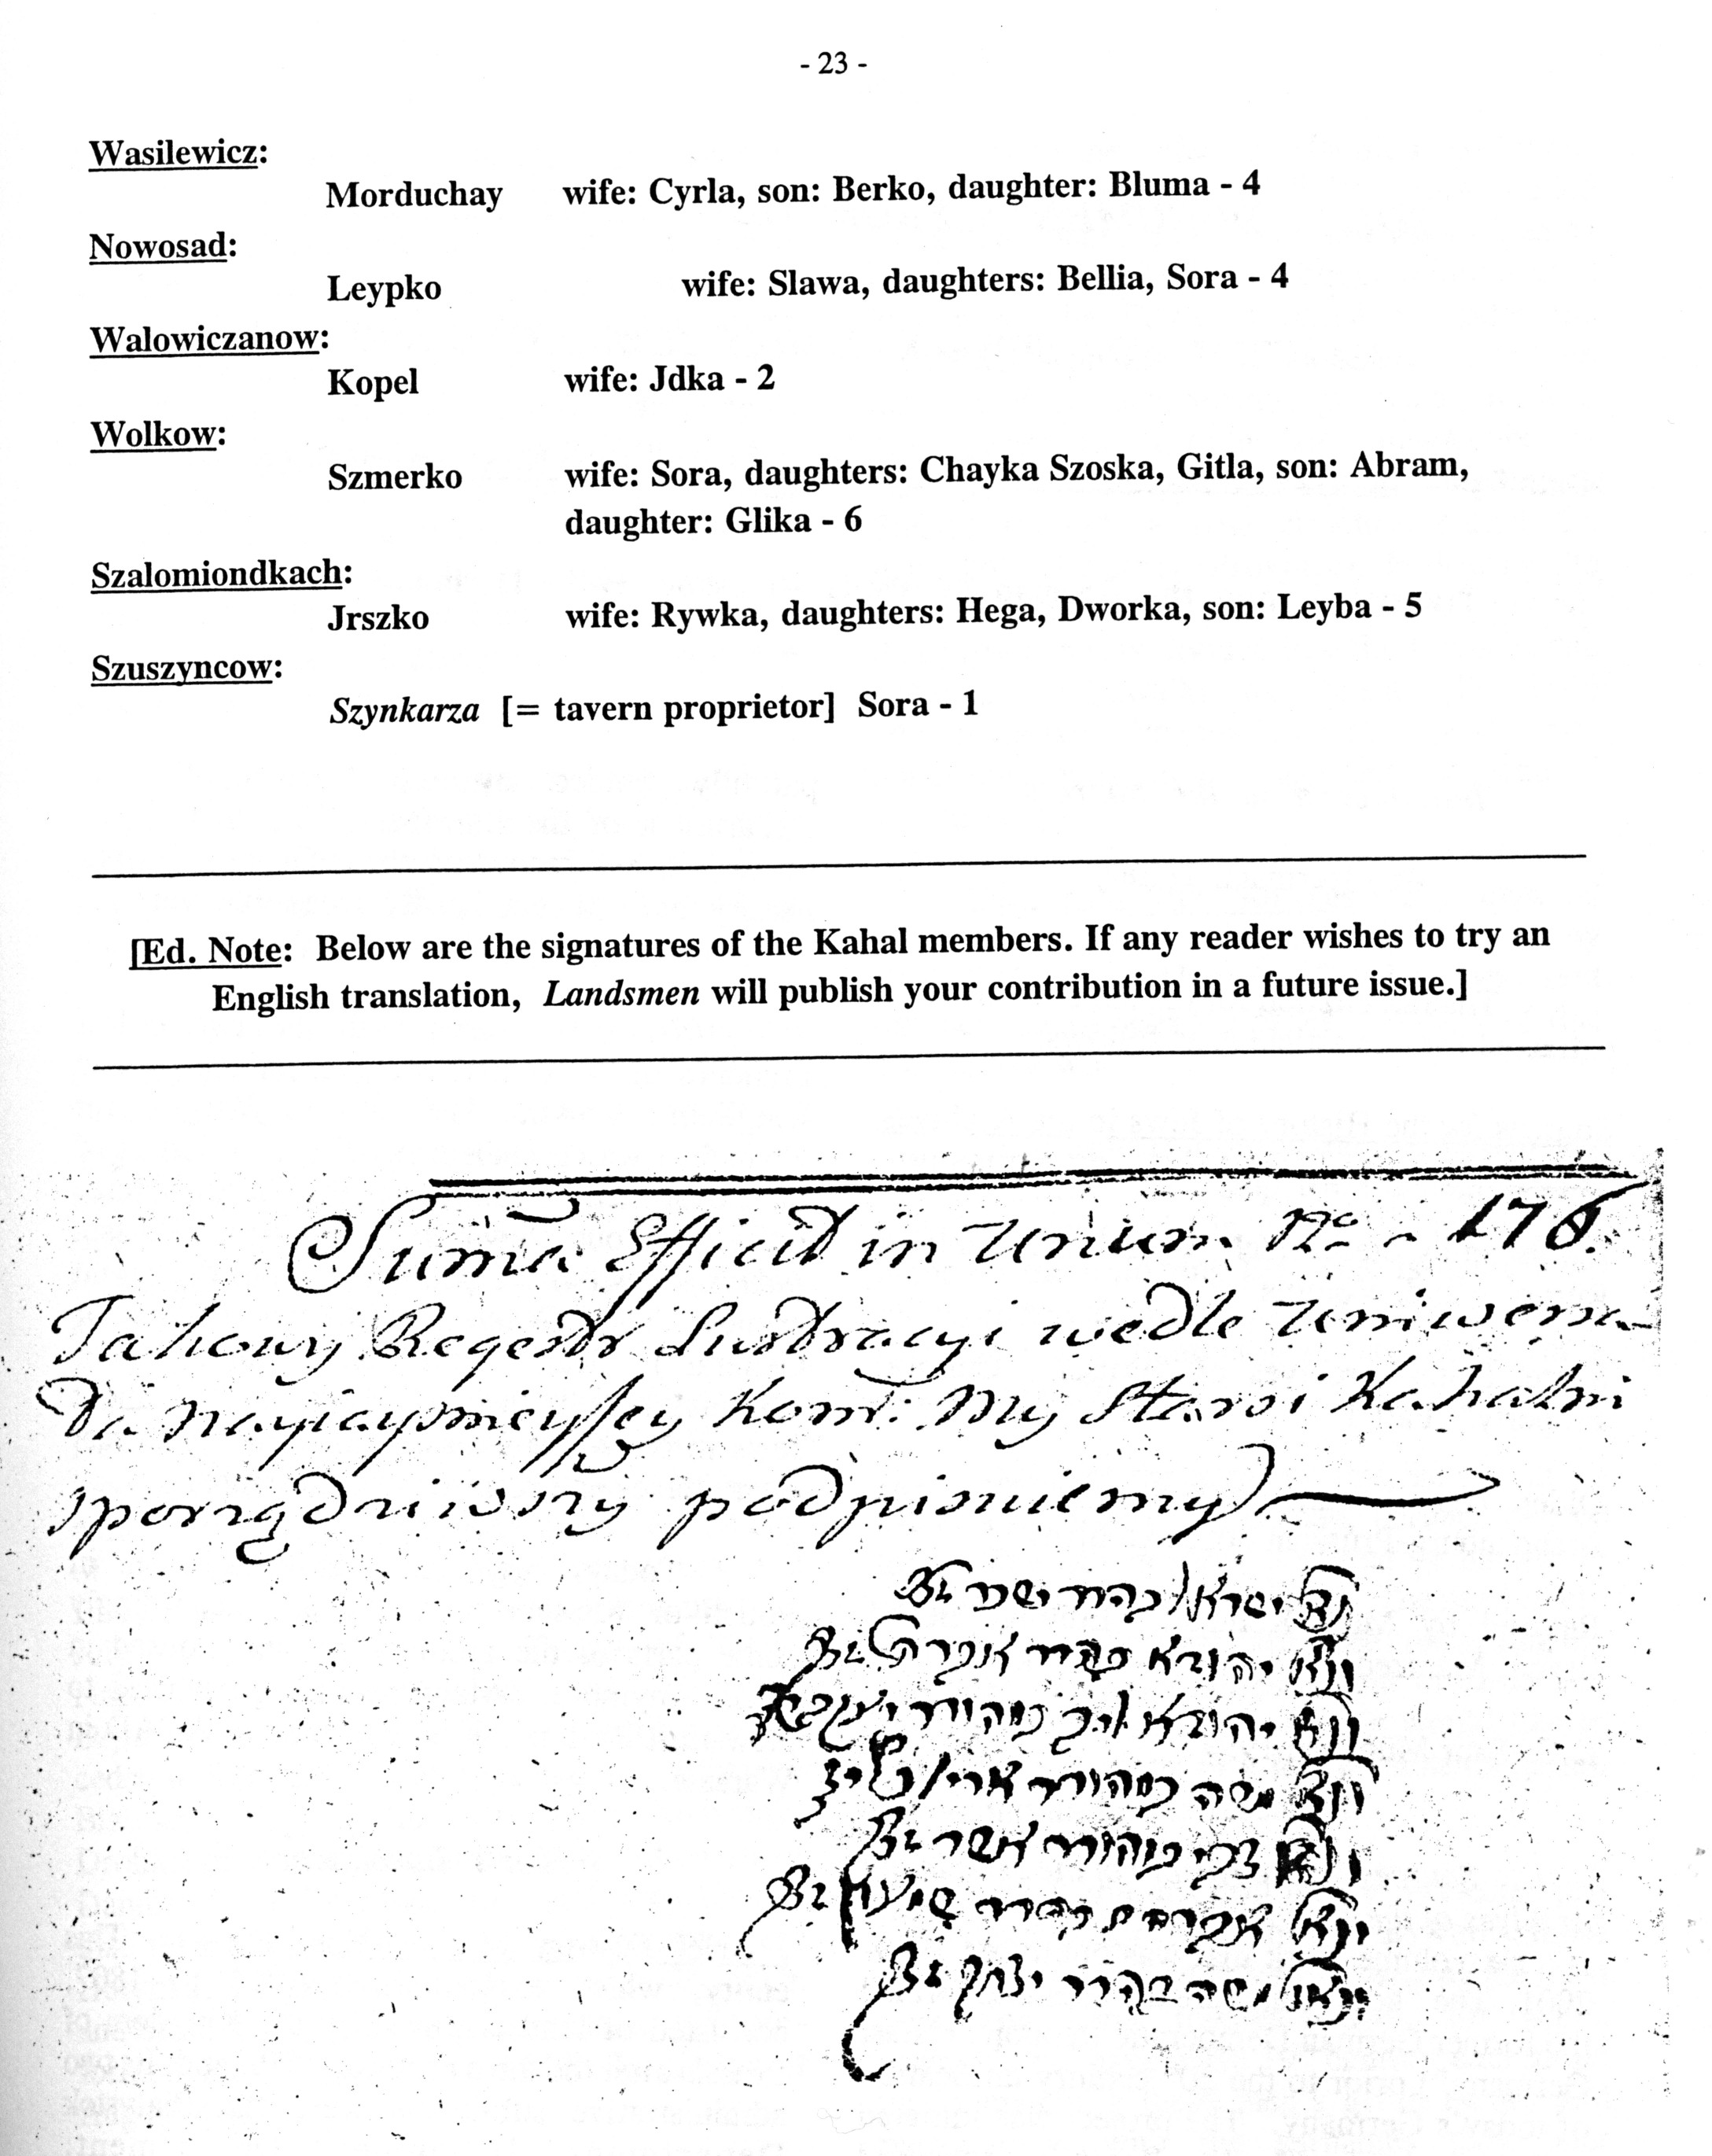 - 23 -
Wasilewicz:
Morduchay wife: Cyrla, son: Berko, daughter: Bluma - 4
Nowosad:
Leypko wife: Slawa, daughters: Bellia, Sora - 4
Walowiczanow:
Kopel wife: Jdka - 2
Wolkow:
Szmerko wife: Sora, daughters: Chayka Szoska, Gitla, son: Abram,
daughter: Glika - 6
Szalomiondkach:
Jrszko wife: Rywka, daughters: Hega, Dworka, son: Leyba - 5
Szuszyncow:
Szynkarza [= tavern proprietor] Sora - 1
[Ed. Note: Below are the signatures of the Kahal members. If any reader wishes to try an
English translation, Landsmen will publish your contribution in a future issue.]
Suma Efficit in Unum No - 176.
Takowy Regestr Lustracyi wedle Uniwersa-
łu Kom: My Starsi Kahalni
sporządziwszy podpisuiemy
ישראל
יהודא
יהודא ליב
משה כמוהרר
צבי כמוהרר אשר
אפרים
משה יצחק